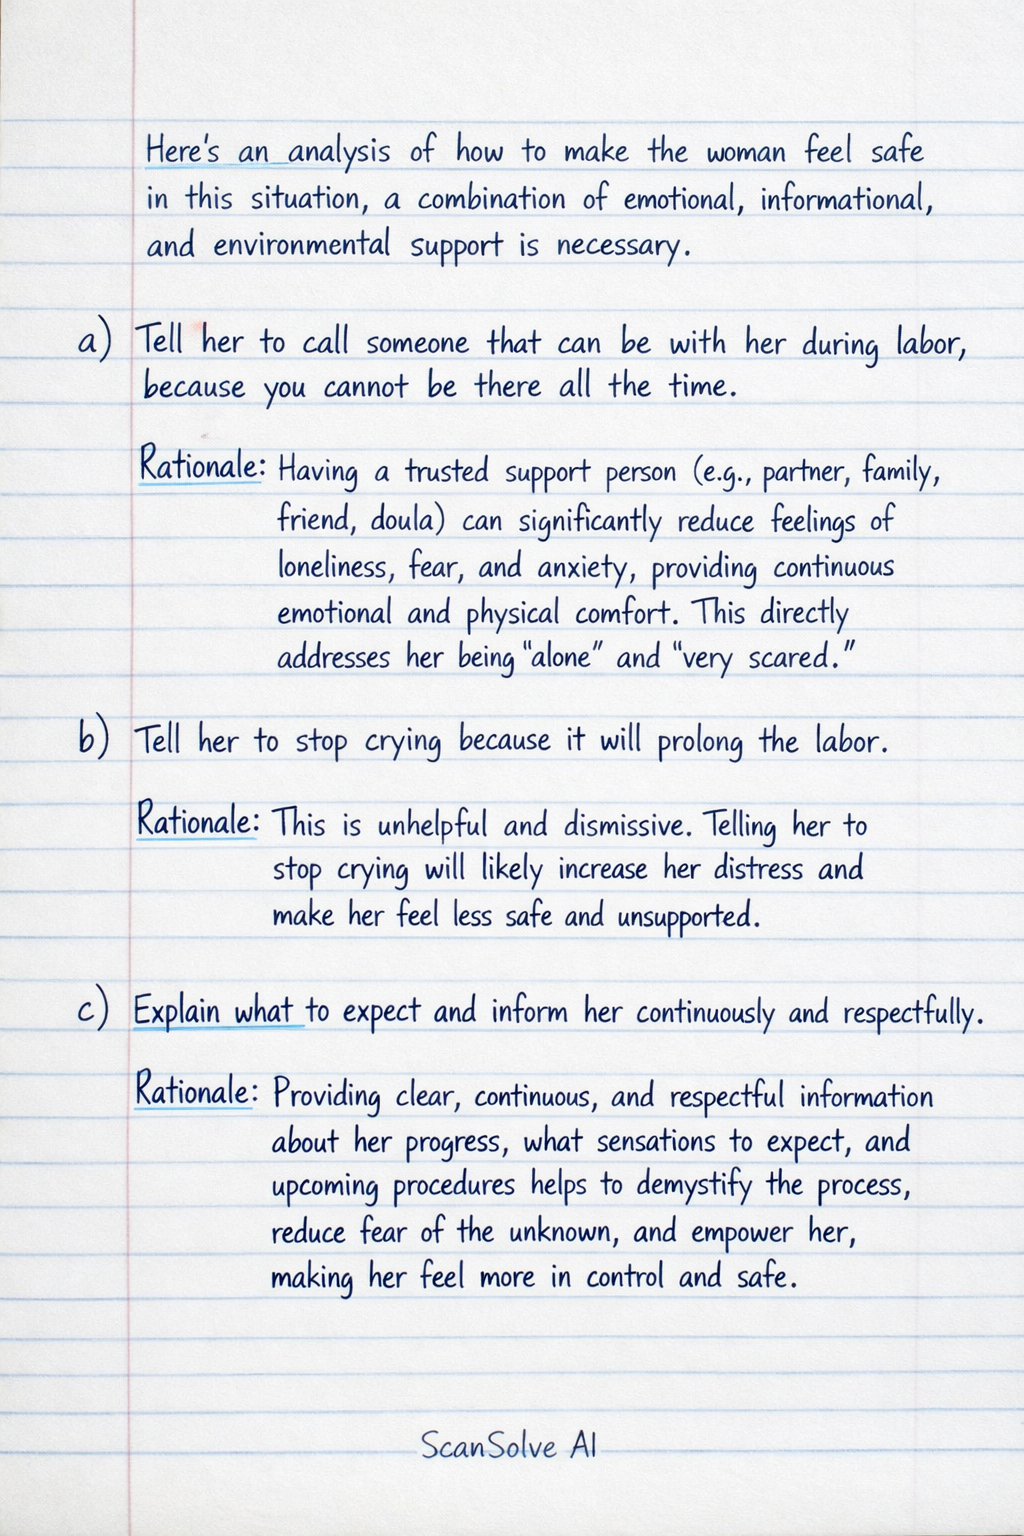 Here's an analysis of how to make the woman feel safe
in this situation, a combination of emotional, informational,
and environmental support is necessary.
a) Tell her to call someone that can be with her during labor,
because you cannot be there all the time.
Rationale: Having a trusted support person (e.g., partner, family,
friend, doula) can significantly reduce feelings of
loneliness, fear, and anxiety, providing continuous
emotional and physical comfort. This directly
addresses her being "alone" and "very scared."
b) Tell her to stop crying because it will prolong the labor.
Rationale: This is unhelpful and dismissive. Telling her to
stop crying will likely increase her distress and
make her feel less safe and unsupported.
c) Explain what to expect and inform her continuously and respectfully.
Rationale: Providing clear, continuous, and respectful information
about her progress, what sensations to expect, and
upcoming procedures helps to demystify the process,
reduce fear of the unknown, and empower her,
making her feel more in control and safe.
ScanSolve AI